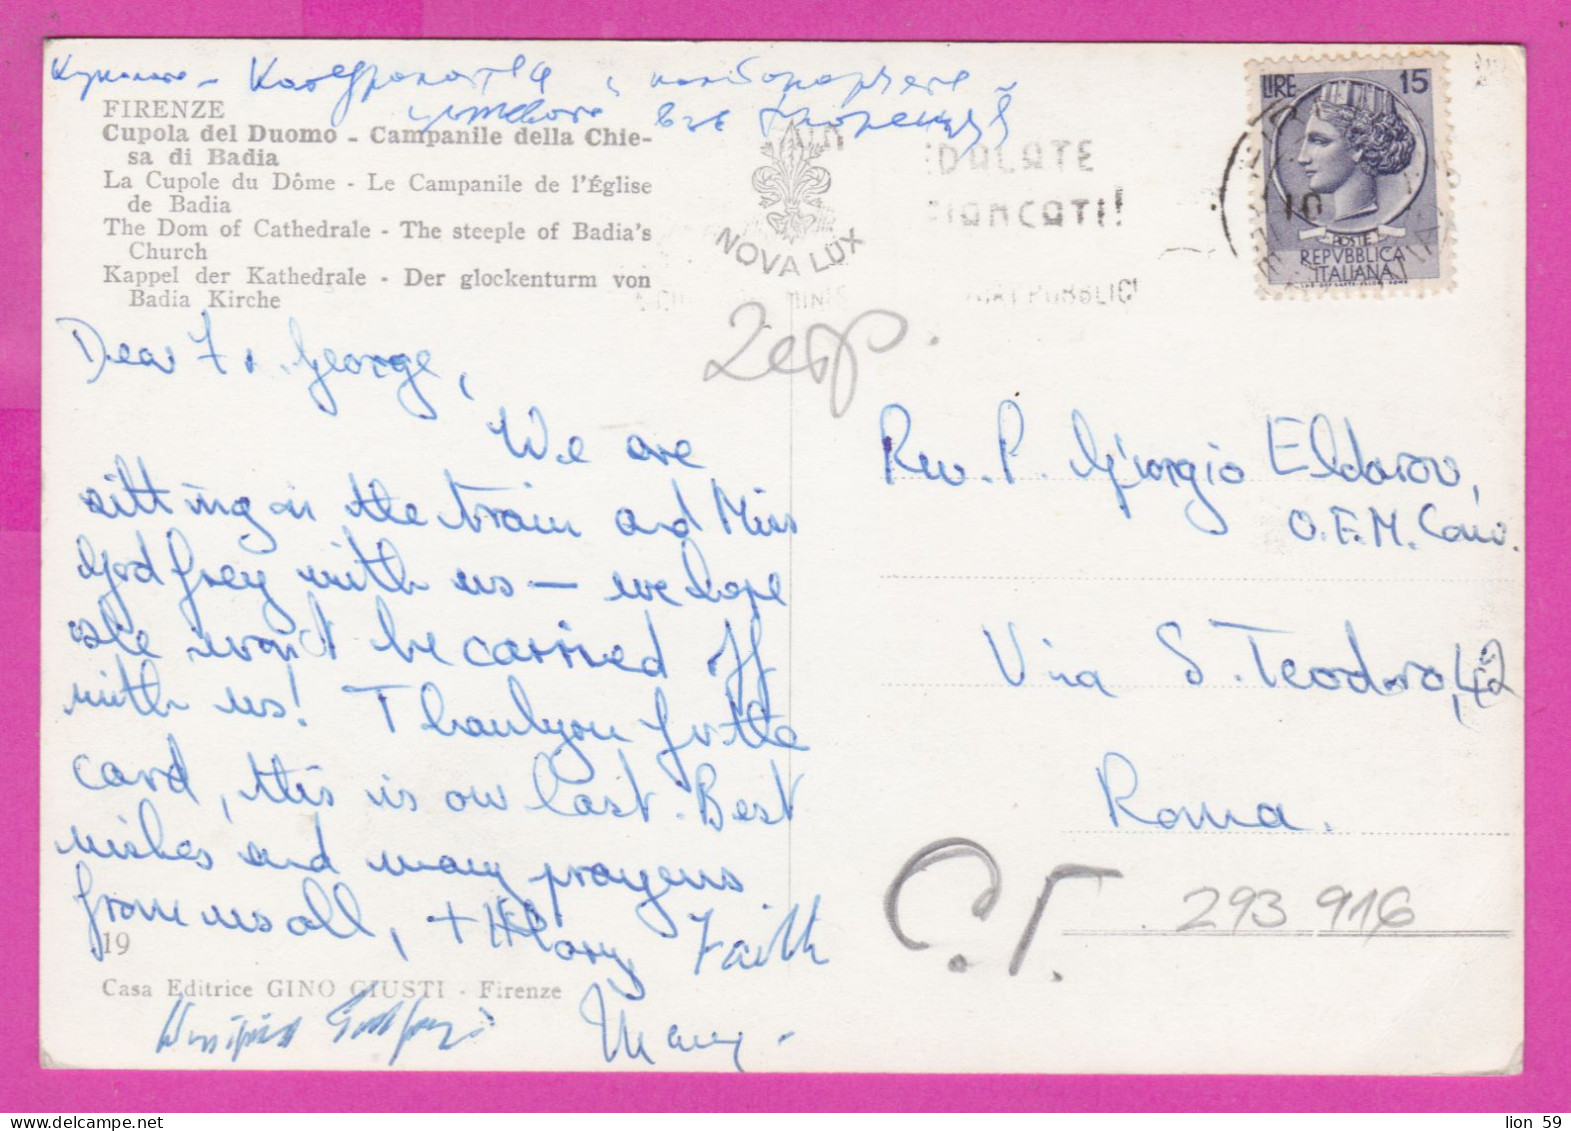 FIRENZE
Cupola del Duomo - Campanile della Chie-
sa di Badia
La Cupole du Dôme - Le Campanile de l'Église
de Badia
The Dom of Cathedrale - The steeple of Badia's
Church
Kappel der Kathedrale - Der glockenturm von
Badia Kirche
NOVA LUX
LIRE 15
POSTE
REPVBBLICA
ITALIANA
Dear Fr. George,
We are
sitting in the train and Miss
Godfrey with us — we hope
she won't be carried off
with us! Thank you for the
card, this is our last. Best
wishes and many prayers
from us all, + Hilary Faith
Winifred Godfrey Mary.
Rev. P. Giorgio Eldarov,
O.F.M. Conv.
Via S. Teodoro, 42
Roma.
C.T. 293 916
19
Casa Editrice GINO GIUSTI - Firenze
lion 59